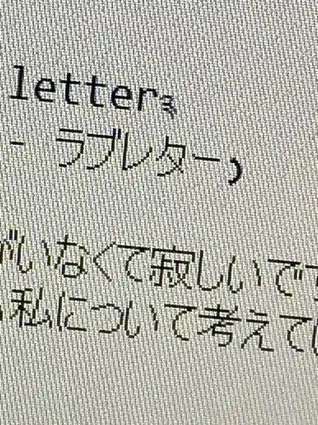 letter
- ラブレター
がいなくて寂しいで
私について考えて